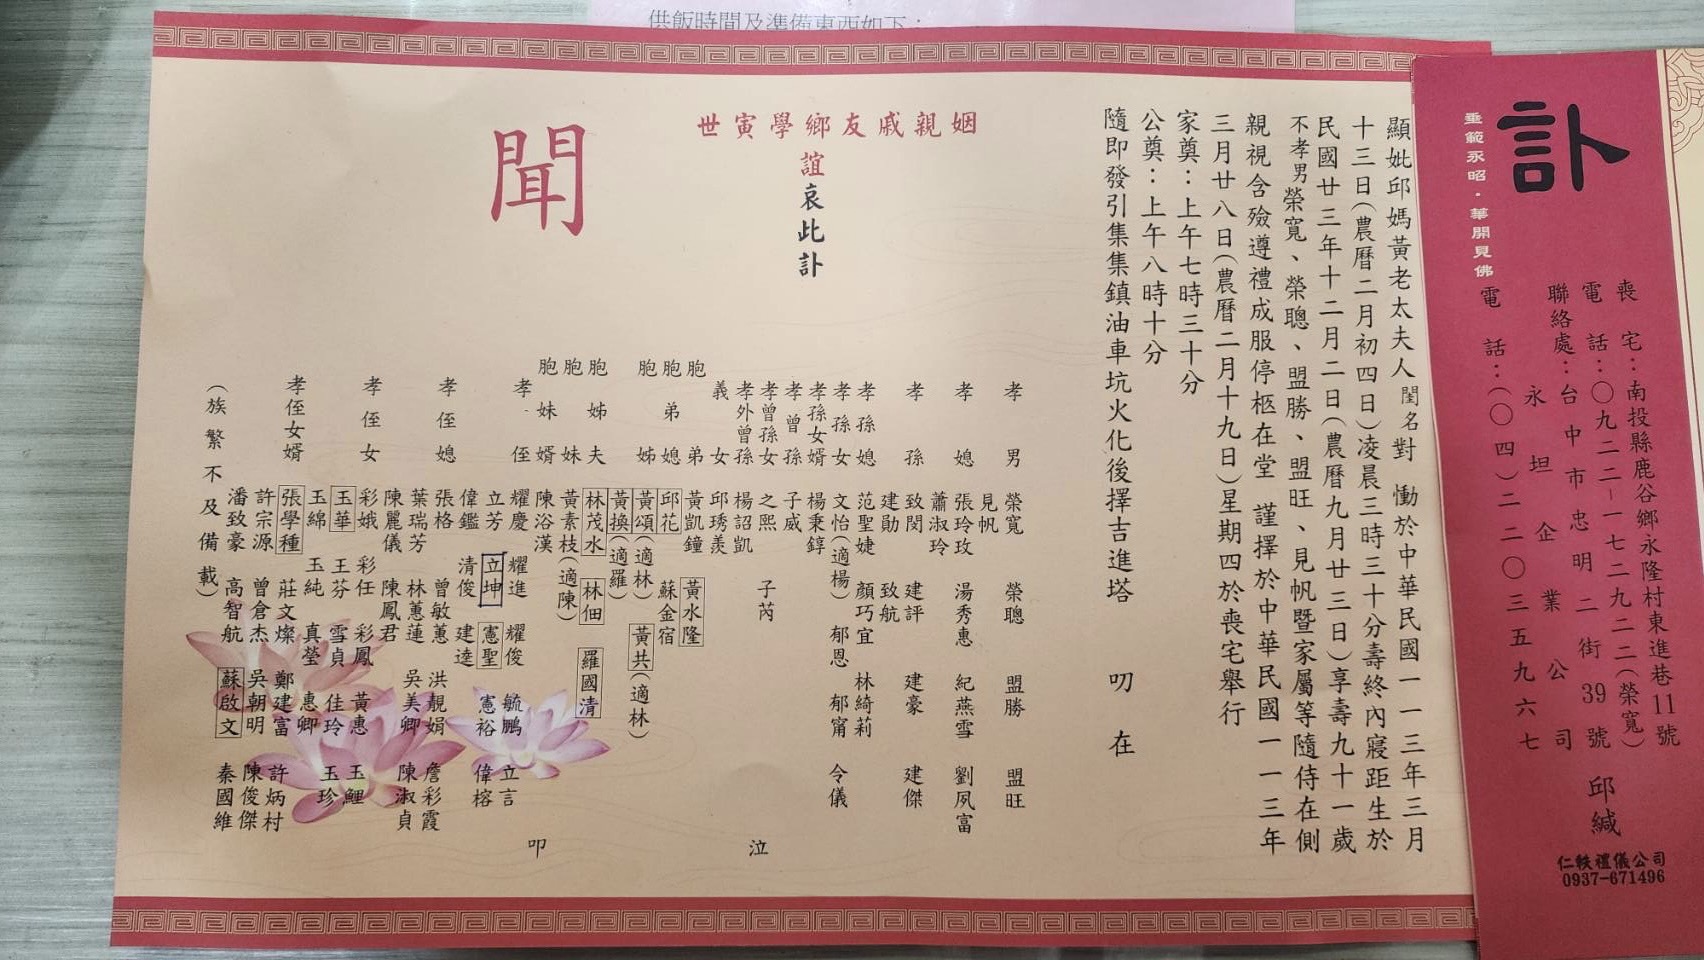 供飯時間及準備東西如下：
訃
垂範永昭．華開見佛
喪宅：南投縣鹿谷鄉永隆村東進巷11號
電話：〇九二二－一七二九二二（榮寬）
聯絡處：台中市忠明二街39號
永坦企業公司
電話：（〇四）二二〇三五九六七
邱緘
仁軼禮儀公司
0937-671496
顯妣邱媽黃老太夫人閨名對慟於中華民國一一三年三月
十三日（農曆二月初四日）凌晨三時三十分壽終內寢距生於
民國廿三年十二月二日（農曆九月廿三日）享壽九十一歲
不孝男榮寬、榮聰、盟勝、盟旺、見帆暨家屬等隨侍在側
親視含殮遵禮成服停柩在堂 謹擇於中華民國一一三年
三月廿八日（農曆二月十九日）星期四於喪宅舉行
家奠：上午七時三十分
公奠：上午八時十分
隨即發引集集鎮油車坑火化後擇吉進塔 叨在
姻親戚友鄉學寅世
誼哀此訃
聞
孝男 榮寬 榮聰 盟勝 盟旺
見帆
孝媳 張玲玫 湯秀惠 紀燕雪 劉夙富
蕭淑玲
孝孫 致閔 建評 建豪 建傑
建勛 致航
孝孫媳 范聖婕 顏巧宜 林綺莉
孝孫女 文怡（適楊） 郁恩 郁甯 令儀
孝孫女婿 楊秉錞
孝曾孫 子威
孝曾孫女 之熙 子芮
孝外曾孫 楊詔凱
義女 邱琇羨
胞弟 黃凱鐘 黃水隆
胞弟媳 邱花 蘇金宿
胞姊 黃頌（適林） 黃共（適林）
黃換（適羅）
胞姊夫 林茂水 林佃 羅國清
胞妹 黃素枝（適陳）
胞妹婿 陳浴漢
孝侄 耀慶 耀進 耀俊 毓鵬 立言
立芳 立坤 憲聖 憲裕 偉榕
偉鑑 清俊 建達
孝侄媳 張格 曾敏蕙 洪靚娟 詹彩霞
葉瑞芳 林蕙蓮 吳美卿 陳淑貞
陳麗儀 陳鳳君
孝侄女 彩娥 彩任 彩鳳 黃惠 玉鯉
玉華 玉芬 雪貞 佳玲 玉珍
玉綿 玉純 真瑩 惠卿
孝侄女婿 張學種 莊文燦 鄭建富 許炳村
許宗源 曾倉杰 吳朝明 陳俊傑
潘致豪 高智航 蘇啟文 秦國維
（族繁不及備載）
泣
叩